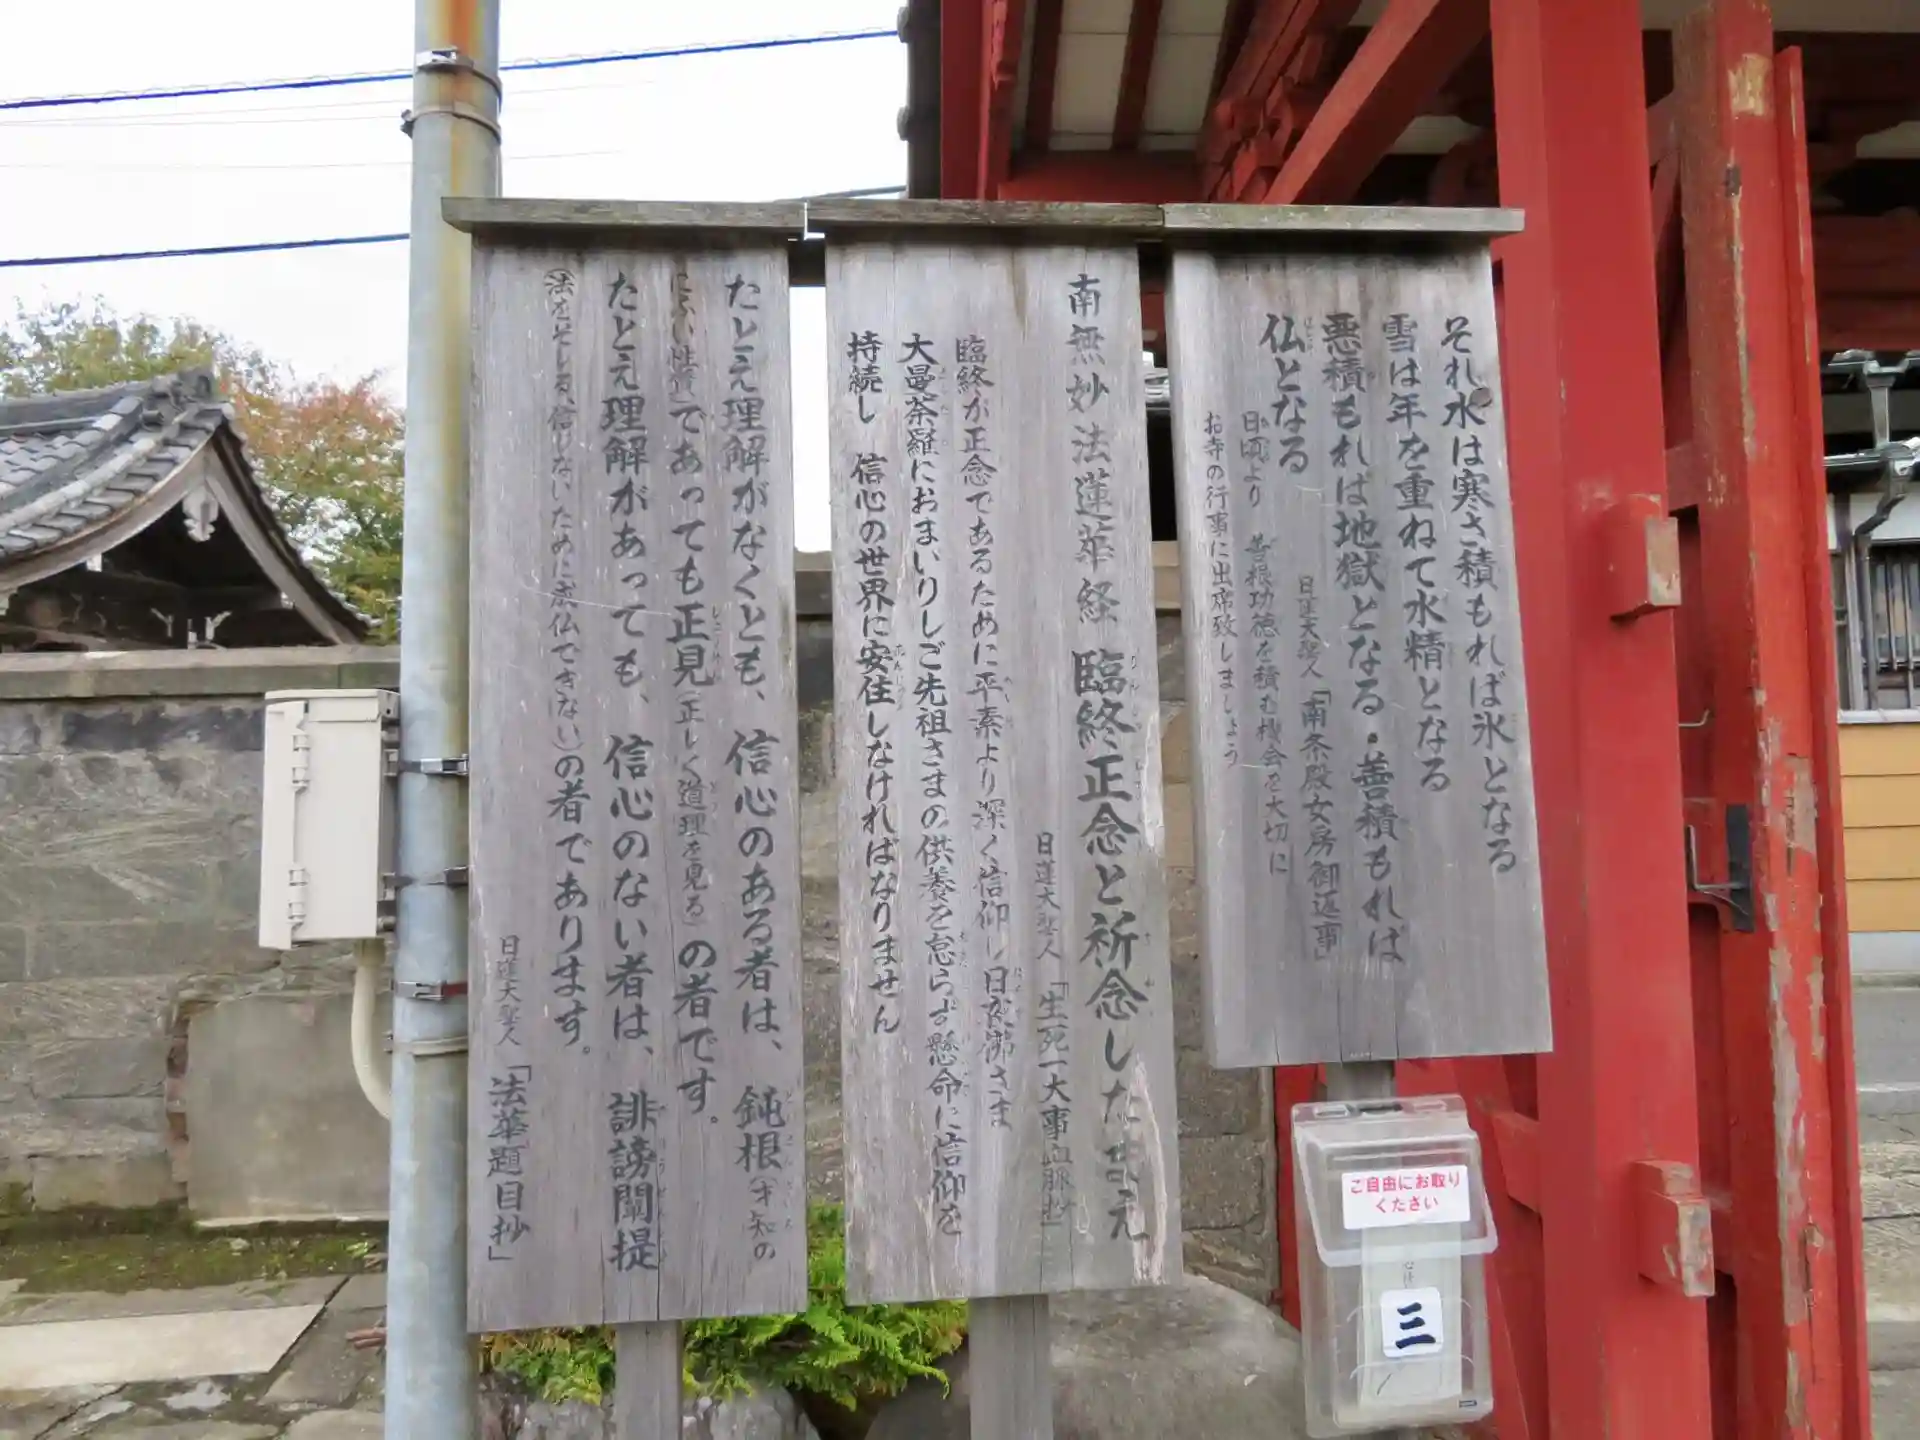 それ水は寒さ積もれば氷となる
雪は年を重ねて水精となる
悪積もれば地獄となる・善積もれば
仏となる
日蓮大聖人「南条殿女房御返事」
日頃より 善根功徳を積む機会を大切に
お寺の行事に出席致しましょう
南無妙法蓮華経 臨終正念と祈念したまえ
日蓮大聖人「生死一大事血脈抄」
臨終が正念であるために平素より深く信仰し日夜佛さま
大曼荼羅におまいりしご先祖さまの供養を怠らず懸命に信仰を
持続し 信心の世界に安住しなければなりません
たとえ理解がなくとも、信心のある者は、鈍根(才知の
にぶい性質)であっても正見(正しく道理を見る)の者です。
たとえ理解があっても、信心のない者は、誹謗闡提
(法をそしる、信じないために成仏できない)の者であります。
日蓮大聖人「法華題目抄」
ご自由にお取り
ください
三